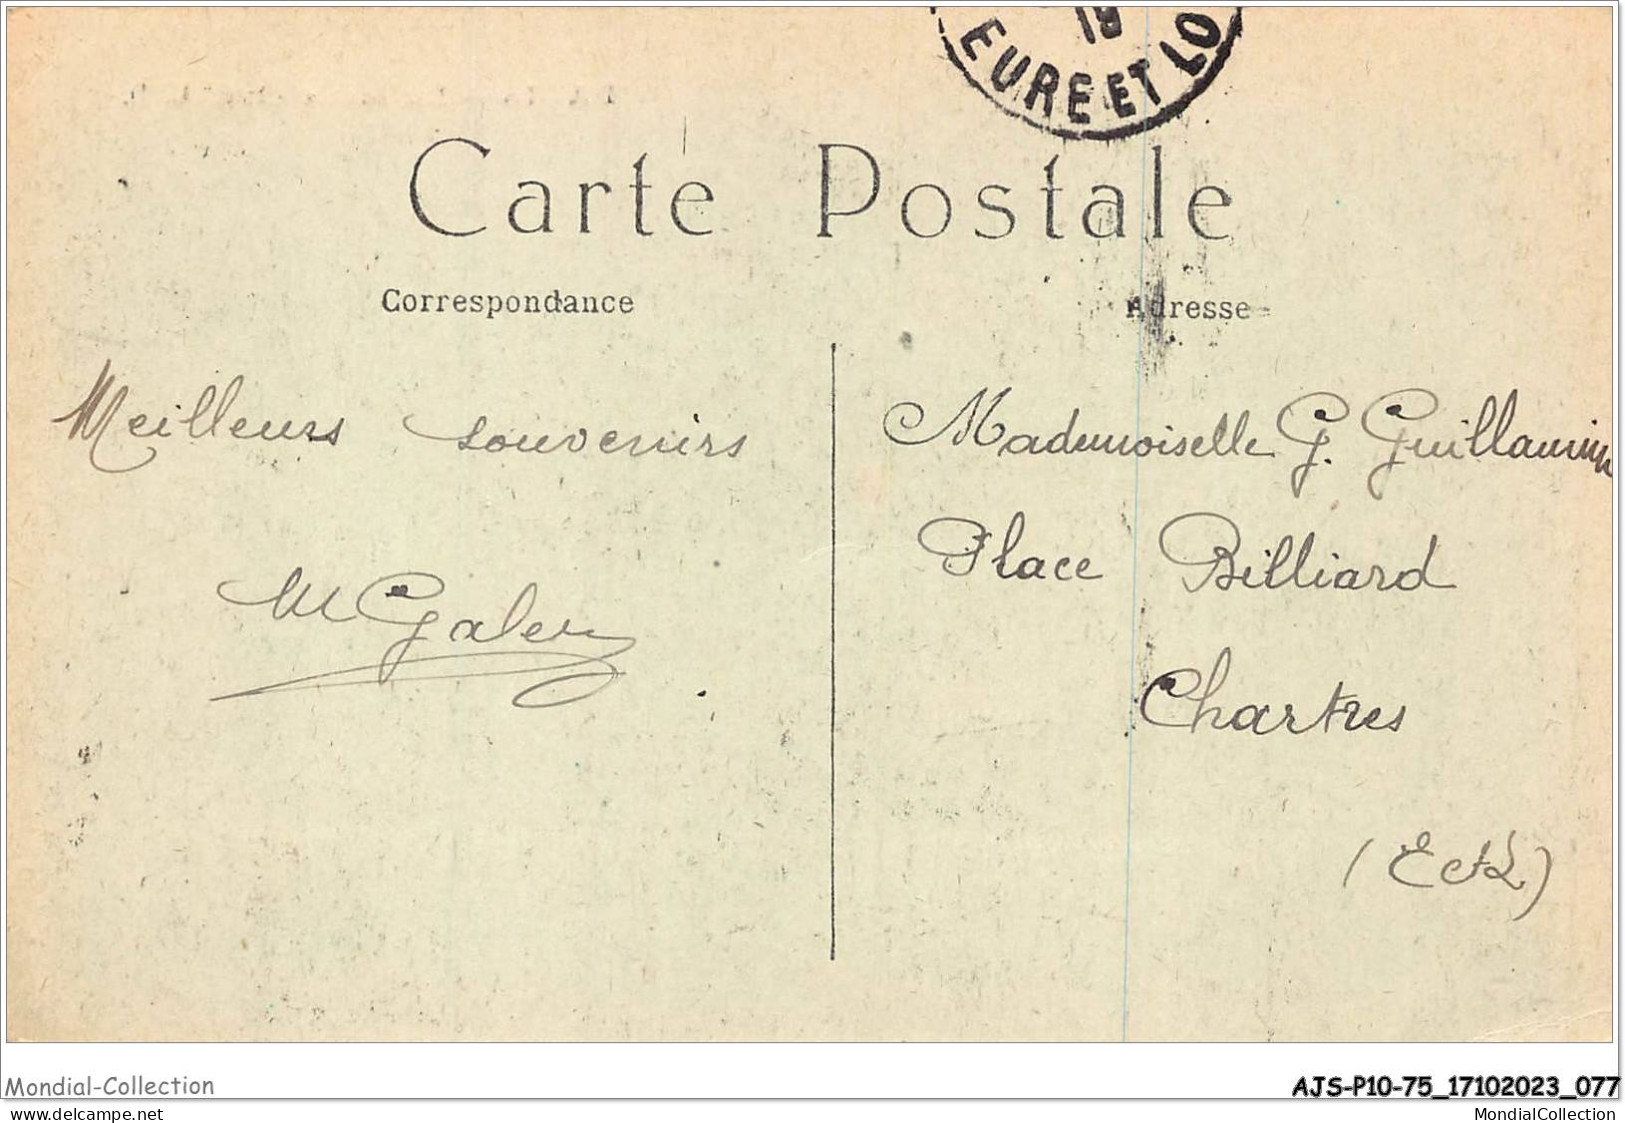 19
EURE ET LO
Carte Postale
Correspondance
Adresse
Meilleurs souvenirs
Mademoiselle G. Guillaumin
Place Billiard
Chartres
(E et L)
Mondial-Collection
AJS-P10-75_17102023_077
www.delcampe.net
MondialCollection